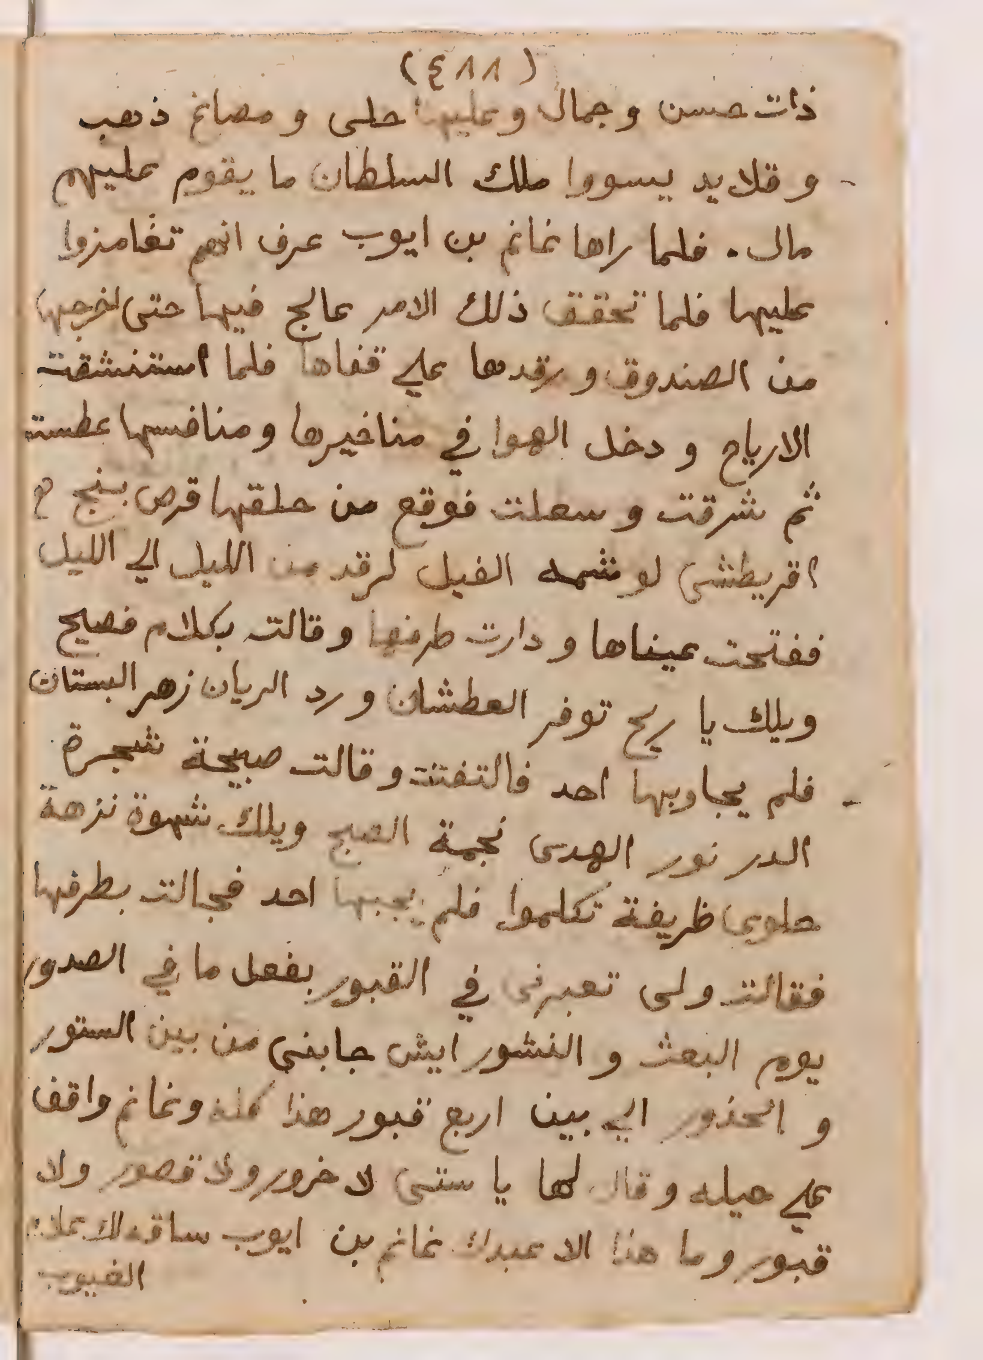 (٤٨٨)
ذات حسن وجمال وعليها حلى و مصاغ ذهب
و قلايد يسووا ملك السلطان ما يقوم عليهم
مال . فلما راها غانم بن ايوب عرف انهم تغامزوا
عليها فلما تحقق ذلك الامر عالج فيها حتى اخرجها
من الصندوق ورقدها على قفاها فلما استنشقت
الارياح و دخل الهوا في مناخيرها ومنافسها عطست
ثم شرقت و سعلت فوقع من حلقها قرص بنج
اقريطشى لو شمه الفيل لرقد من الليل الي الليل
ففتحت عيناها و دارت طرفها وقالت بكلام فصيح
ويلك يا ريح توفر العطشان ورد الريان زهر البستان
فلم يجاوبها احد فالتفتت وقالت صبيحة شجرة
الدر نور الهدى نجمة الصبح ويلك شهوة نزهة
حلوى ظريفة تكلموا فلم يجبها احد فجالت بطرفها
فقالت ولى تعبرنى في القبور بفعل ما في الصدور
يوم البعث و النشور ايش جابنى من بين الستور
و الخذور الي بين اربع قبور هذا كله وغانم واقف
على حيله وقال لها يا ستى لا خرور ولا قصور ولا
قبور وما هذا الا عبدك غانم بن ايوب ساقه لك علام
الغيوب